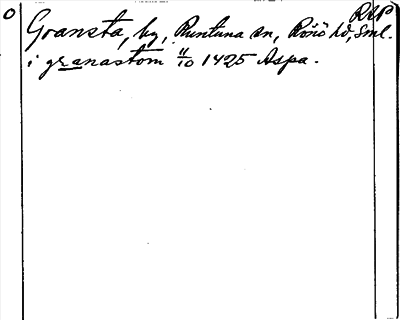 RAP
Gransta, by, Runtuna sn, Rönö hd, Sml.
i granastom 11/10 1425 Aspa.